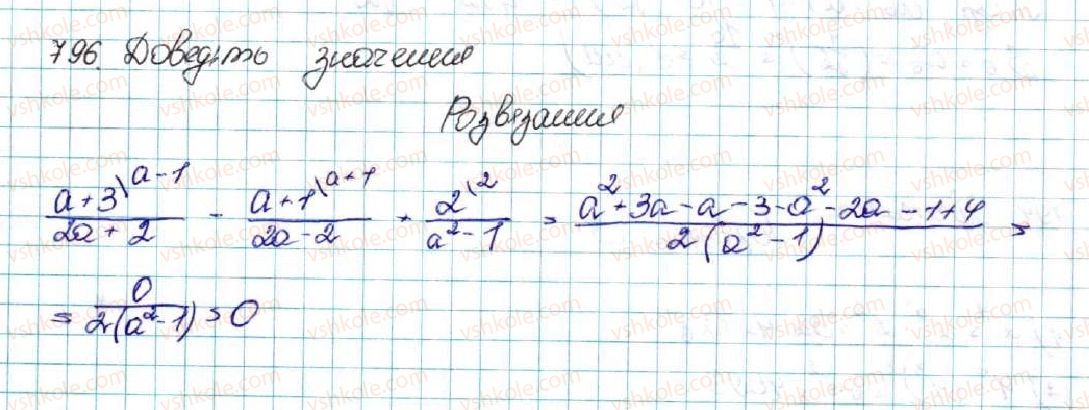 796. Доведіть значення
Розвезання
(a+3)/(2a+2) \a-1 - (a+1)/(2a-2) \a+1 + 2/(a²-1) \2 = (a²+3a-a-3-a²-2a-1+4)/(2(a²-1)) =
= 0/(2(a²-1)) = 0
vshkole.com